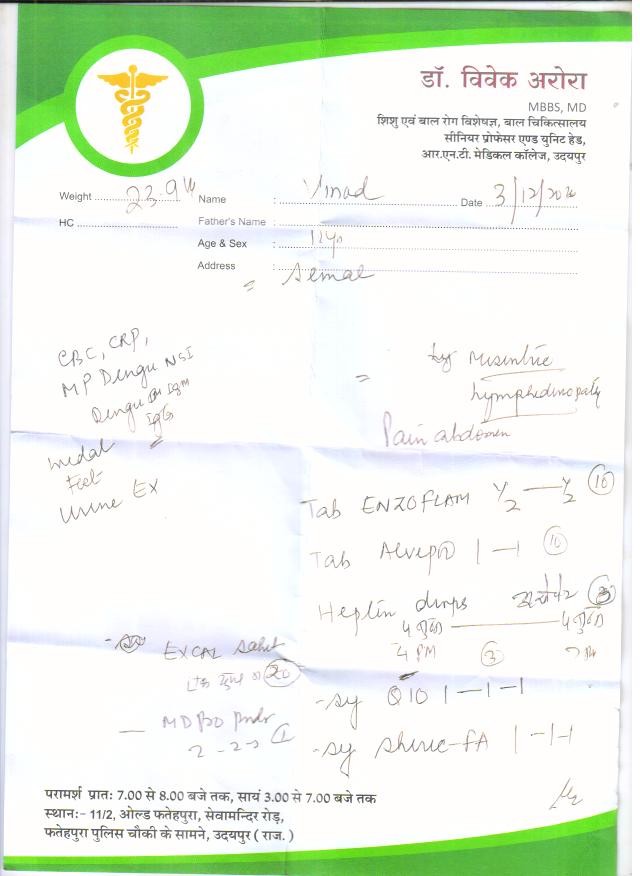 डॉ. विवेक अरोरा
MBBS, MD
शिशु एवं बाल रोग विशेषज्ञ, बाल चिकित्सालय
सीनियर प्रोफेसर एण्ड युनिट हेड,
आर.एन.टी. मेडिकल कॉलेज, उदयपुर
Weight 23.9 Name : Vinod Date 3/12/20
HC Father's Name :
Age & Sex : 12 yr
Address : Semal
CBC, CRP,
MP Dengu NSI
Dengu IgM
IgG
Widal
Test
Urine EX
Misentric
lymphedinopathy
Pain abdomen
Tab ENZOFLAM 1/2 — 1/2 (10)
Tab 1 — 1 (10)
Heplin drops
4 PM (3)
EXCAL Sachet
(20)
2 - 2 - 2 (1)
- sy Q10 1 — 1 — 1
- sy 1 - 1 - 1
परामर्श प्रातः 7.00 से 8.00 बजे तक, सायं 3.00 से 7.00 बजे तक
स्थान:- 11/2, ओल्ड फतेहपुरा, सेवामन्दिर रोड़,
फतेहपुरा पुलिस चौकी के सामने, उदयपुर ( राज. )